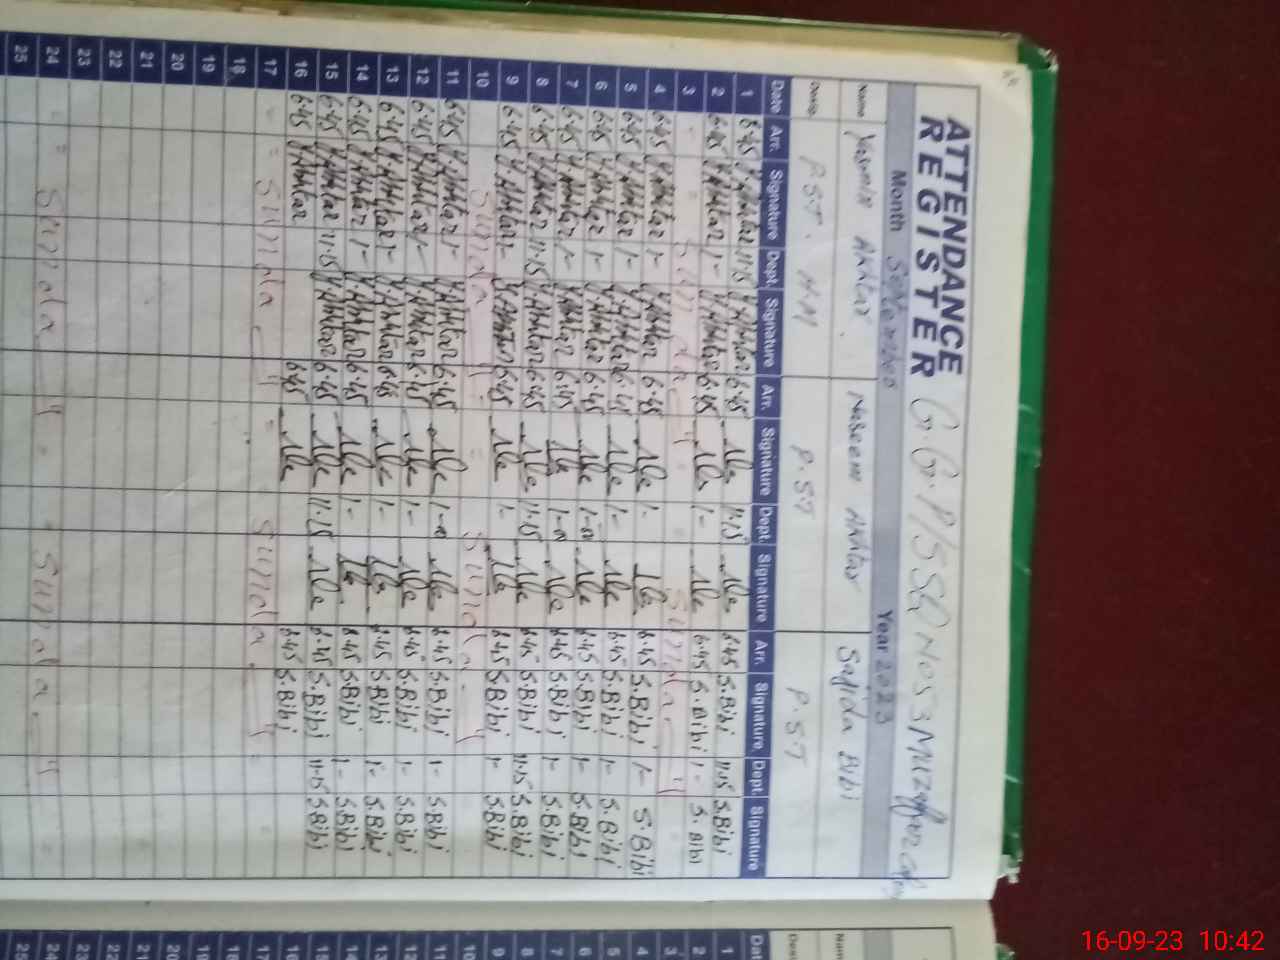 ATTENDANCE
REGISTER
Month September Year 2023
Name Yasmin Akhtar Naseem Akhtar Sajida Bibi
Desig. P.S.T. H.M P.ST P.ST
Date Arr. Signature Dept. Signature Arr. Signature Dept. Signature Arr. Signature Dept. Signature
1 6.45 Y.Akhtar 11.15 Y.Akhtar 6.45 11.15 6.45 S.Bibi 11.15 S.Bibi
2 6.45 Y.Akhtar 1- Y.Akhtar 6.45 1- 6.45 S.Bibi 1- S.Bibi
3 Sunda y Sunda y
4 6.45 Y.Akhtar 1- Y.Akhtar 6.45 1- 6.45 S.Bibi 1- S.Bibi
5 6.45 Y.Akhtar 1- Y.Akhtar 6.45 1- 6.45 S.Bibi 1- S.Bibi
6 6.45 Y.Akhtar 1- Y.Akhtar 6.45 1-00 6.45 S.Bibi 1- S.Bibi
7 6.45 Y.Akhtar 1- Y.Akhtar 6.45 1-00 6.45 S.Bibi 1- S.Bibi
8 6.45 Y.Akhtar 11.15 Y.Akhtar 6.45 11.15 6.45 S.Bibi 11.15 S.Bibi
9 6.45 Y.Akhtar 1- Y.Akhtar 6.45 1- 6.45 S.Bibi 1- S.Bibi
10 Sunda y Sunda y
11 6.45 Y.Akhtar 1- Y.Akhtar 6.45 1-00 6.45 S.Bibi 1- S.Bibi
12 6.45 Y.Akhtar 1- Y.Akhtar 6.45 1- 6.45 S.Bibi 1- S.Bibi
13 6.45 Y.Akhtar 1- Y.Akhtar 6.45 1- 6.45 S.Bibi 1- S.Bibi
14 6.45 Y.Akhtar 1- Y.Akhtar 6.45 1- 6.45 S.Bibi 1- S.Bibi
15 6.45 Y.Akhtar 11.15 Y.Akhtar 6.45 11.15 6.45 S.Bibi 11.15 S.Bibi
16 6.45 Y.Akhtar 6.45 6.45 S.Bibi
17 Sunda y Sunda y
18
19
20
21
22
23
24 Sunda y Sunda y
25
Name
Desig
Dat
1
2
3
4
5
6
7
8
9
10
11
12
13
14
15
16
17
18
19
20
21
22
23
24
25
16-09-23 10:42